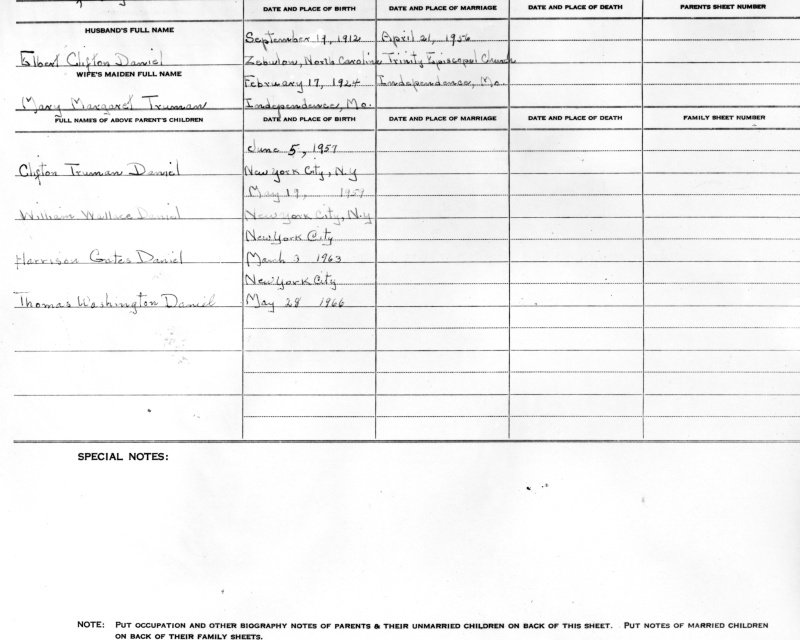 DATE AND PLACE OF BIRTH DATE AND PLACE OF MARRIAGE DATE AND PLACE OF DEATH PARENTS SHEET NUMBER
HUSBAND'S FULL NAME
September 19, 1912 April 21, 1956
Elbert Clifton Daniel Zebulon, North Carolina Trinity Episcopal Church
WIFE'S MAIDEN FULL NAME
February 17, 1924 Independence, Mo.
Mary Margaret Truman Independence, Mo.
FULL NAMES OF ABOVE PARENT'S CHILDREN DATE AND PLACE OF BIRTH DATE AND PLACE OF MARRIAGE DATE AND PLACE OF DEATH FAMILY SHEET NUMBER
June 5, 1957
Clifton Truman Daniel New York City, N.Y
May 19, 1959
William Wallace Daniel New York City, N.Y
New York City
Harrison Gates Daniel March 3 1963
New York City
Thomas Washington Daniel May 28 1966
SPECIAL NOTES:
NOTE: PUT OCCUPATION AND OTHER BIOGRAPHY NOTES OF PARENTS & THEIR UNMARRIED CHILDREN ON BACK OF THIS SHEET. PUT NOTES OF MARRIED CHILDREN
ON BACK OF THEIR FAMILY SHEETS.